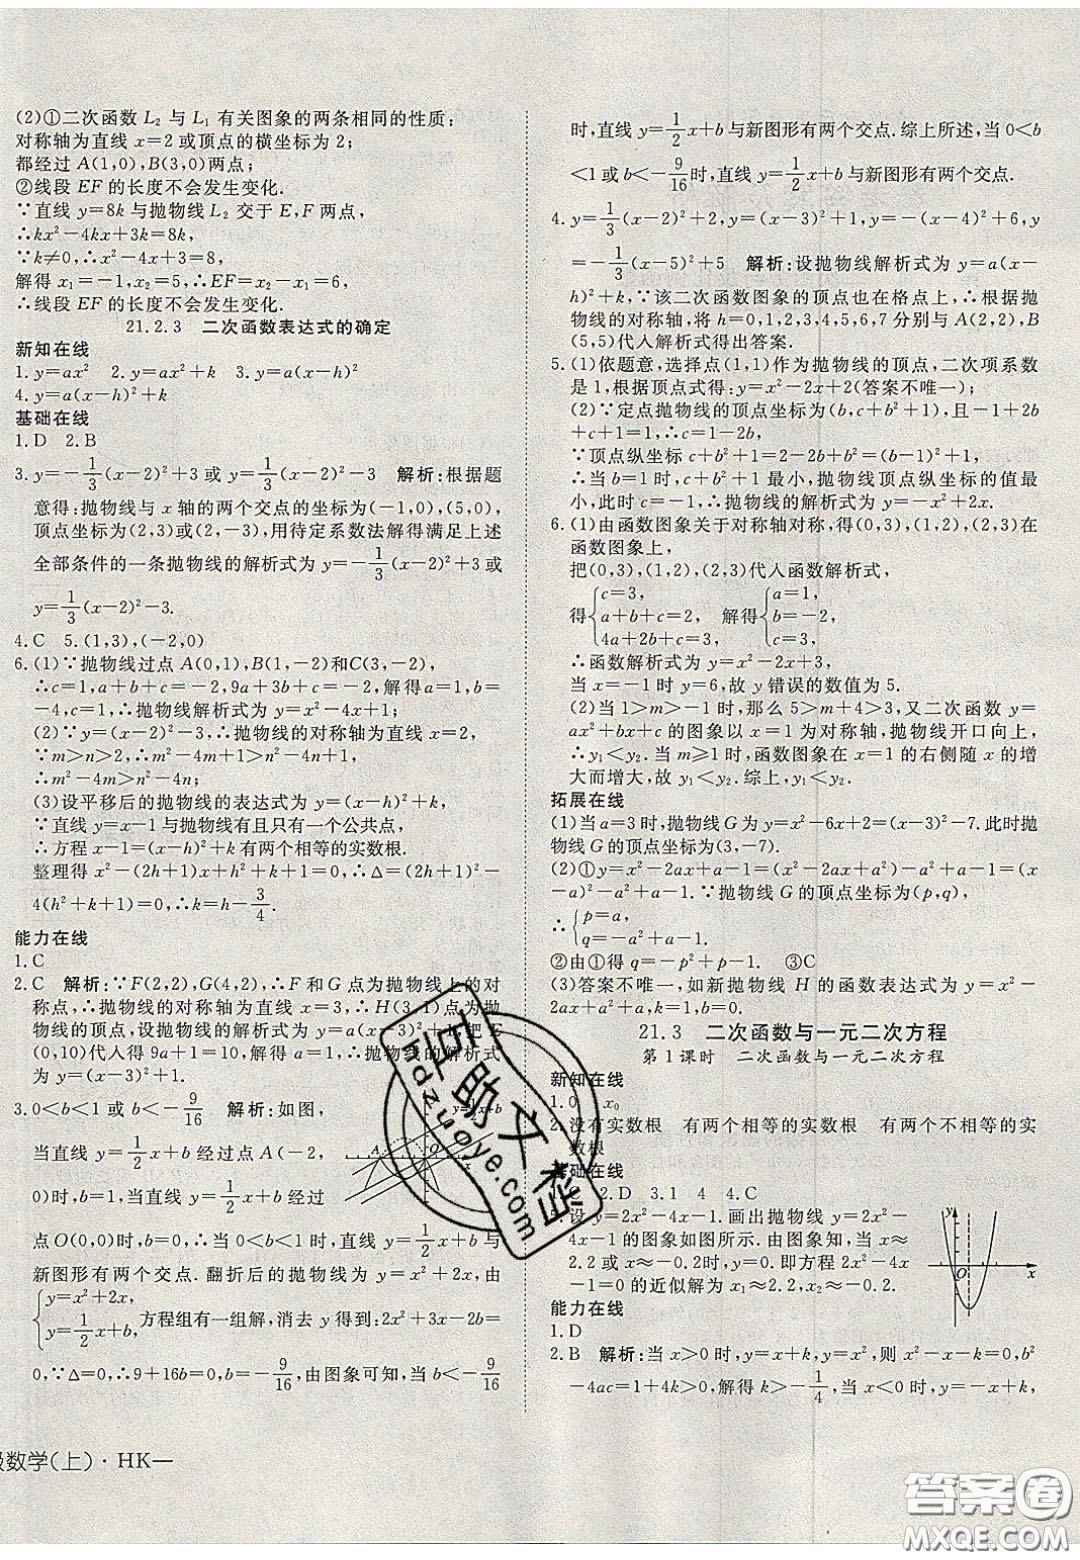 (2)①二次函数 L₂ 与 L₁ 有关图象的两条相同的性质:
对称轴为直线 x=2 或顶点的横坐标为 2;
都经过 A(1,0),B(3,0)两点;
②线段 EF 的长度不会发生变化.
∵直线 y=8k 与抛物线 L₂ 交于 E,F 两点,
∴kx²-4kx+3k=8k,
∵k≠0,∴x²-4x+3=8,
解得 x₁=-1,x₂=5,∴EF=x₂-x₁=6,
∴线段 EF 的长度不会发生变化.
21.2.3 二次函数表达式的确定
新知在线
1. y=ax² 2. y=ax²+k 3. y=a(x-h)²
4. y=a(x-h)²+k
基础在线
1. D 2. B
3. y=-1/3(x-2)²+3 或 y=1/3(x-2)²-3 解析:根据题
意得:抛物线与 x 轴的两个交点的坐标为(-1,0),(5,0),
顶点坐标为(2,3)或(2,-3),用待定系数法解得满足上述
全部条件的一条抛物线的解析式为 y=-1/3(x-2)²+3 或
y=1/3(x-2)²-3.
4. C 5. (1,3),(-2,0)
6. (1)∵抛物线过点 A(0,1),B(1,-2)和C(3,-2),
∴c=1,a+b+c=-2,9a+3b+c=-2,解得 a=1,b=
-4,c=1,∴抛物线解析式为 y=x²-4x+1;
(2)∵y=(x-2)²-3,∴抛物线的对称轴为直线 x=2,
∵m>n>2,∴m²-4m+1>n²-4n+1,
∴m²-4m>n²-4n;
(3)设平移后的抛物线的表达式为 y=(x-h)²+k,
∵直线 y=x-1 与抛物线有且只有一个公共点,
∴方程 x-1=(x-h)²+k 有两个相等的实数根.
整理得 x²-(2h+1)x+h²+k+1=0,∴Δ=(2h+1)²-
4(h²+k+1)=0,∴k=h-3/4.
能力在线
1. C
2. C 解析:∵F(2,2),G(4,2),∴F 和 G 点为抛物线上的对
称点,∴抛物线的对称轴为直线 x=3,∴H(3,1)点为抛
物线的顶点,设抛物线的解析式为 y=a(x-3)²+1,把 E
(0,10)代入得 9a+1=10,解得 a=1,∴抛物线的解析式
为 y=(x-3)²+1.
3. 0<b<1 或 b<-9/16 解析:如图,
当直线 y=1/2x+b 经过点 A(-2,
0)时,b=1,当直线 y=1/2x+b 经过
点 O(0,0)时,b=0,∴0<b<1 时,直线 y=1/2x+b 与
新图形有两个交点. 翻折后的抛物线为 y=x²+2x,由
{y=x²+2x, y=1/2x+b, 方程组有一组解,消去 y 得到:2x²+3x-2b=
0,∵Δ=0,∴9+16b=0,∴b=-9/16,由图象可知,当 b<-9/16
级数学(上)·HK—
时,直线 y=1/2x+b 与新图形有两个交点. 综上所述,当 0<b
<1 或 b<-9/16时,直线 y=1/2x+b 与新图形有两个交点.
4. y=1/3(x-2)²+2,y=(x-3)²+1,y=-(x-4)²+6,y
=-1/3(x-5)²+5 解析:设抛物线解析式为 y=a(x-
h)²+k,∵该二次函数图象的顶点也在格点上,∴抛
物线的对称轴,将 h=0,1,2,3,4,5,6,7 分别与 A(2,2),B
(5,5)代入解析式得出答案.
5. (1)依题意,选择点(1,1)作为抛物线的顶点,二次项系数
是 1,根据顶点式得:y=x²-2x+2(答案不唯一);
(2)∵定点抛物线的顶点坐标为(b,c+b²+1),且-1+2b
+c+1=1,∴c=1-2b,
∵顶点纵坐标 c+b²+1=2-2b+b²=(b-1)²+1,
∴当 b=1 时,c+b²+1 最小,抛物线顶点纵坐标的值最
小,此时 c=-1,∴抛物线的解析式为 y=-x²+2x.
6. (1)由函数图象关于对称轴对称,得(0,3),(1,2),(2,3)在
函数图象上,
把(0,3),(1,2),(2,3)代入函数解析式,
得{c=3, a+b+c=2, 4a+2b+c=3, 解得{a=1, b=-2, c=3,
∴函数解析式为 y=x²-2x+3,
当 x=-1 时 y=6,故 y 错误的数值为 5.
(2)当 1>m>-1 时,那么 5>m+4>3,又二次函数 y=
ax²+bx+c 的图象以 x=1 为对称轴,抛物线开口向上,
∴y₁<y₂. 当 m≥1 时,函数图象在 x=1 的右侧随 x 的增
大而增大,故 y₁<y₂. 综上,y₁<y₂.
拓展在线
(1)当 a=3 时,抛物线 G 为 y=x²-6x+2=(x-3)²-7. 此时抛
物线 G 的顶点坐标为(3,-7).
(2)①y=x²-2ax+a-1=(x²-2ax+a²)-a²+a-1=(x
-a)²-a²+a-1. ∵抛物线 G 的顶点坐标为(p,q),
∴{p=a, q=-a²+a-1.
②由①得 q=-p²+p-1 ③C
(3)答案不唯一,如新抛物线 H 的函数表达式为 y=x²-
2ax+a²+a,k=1,b=0.
21.3 二次函数与一元二次方程
第 1 课时 二次函数与一元二次方程
新知在线
1. 0 x₀
2. 没有实数根 有两个相等的实数根 有两个不相等的实
数根
基础在线
2. D 3. 1 4 4. C
5. 设 y=2x²-4x-1. 画出抛物线 y=2x²-
4x-1 的图象如图所示. 由图象知,当 x≈
2.2 或 x≈-0.2时,y=0. 即方程 2x²-4x
-1=0 的近似解为 x₁≈2.2,x₂≈-0.2.
y
O
x
能力在线
1. D
2. B 解析:当 x>0 时,y=x+k,y=x²,则 x²-x-k=0,b²
-4ac=1+4k>0,解得 k>-1/4,当 x<0 时,y=-x+k,
互助文档
hdzuoye.com
答案圈
MXQE.COM